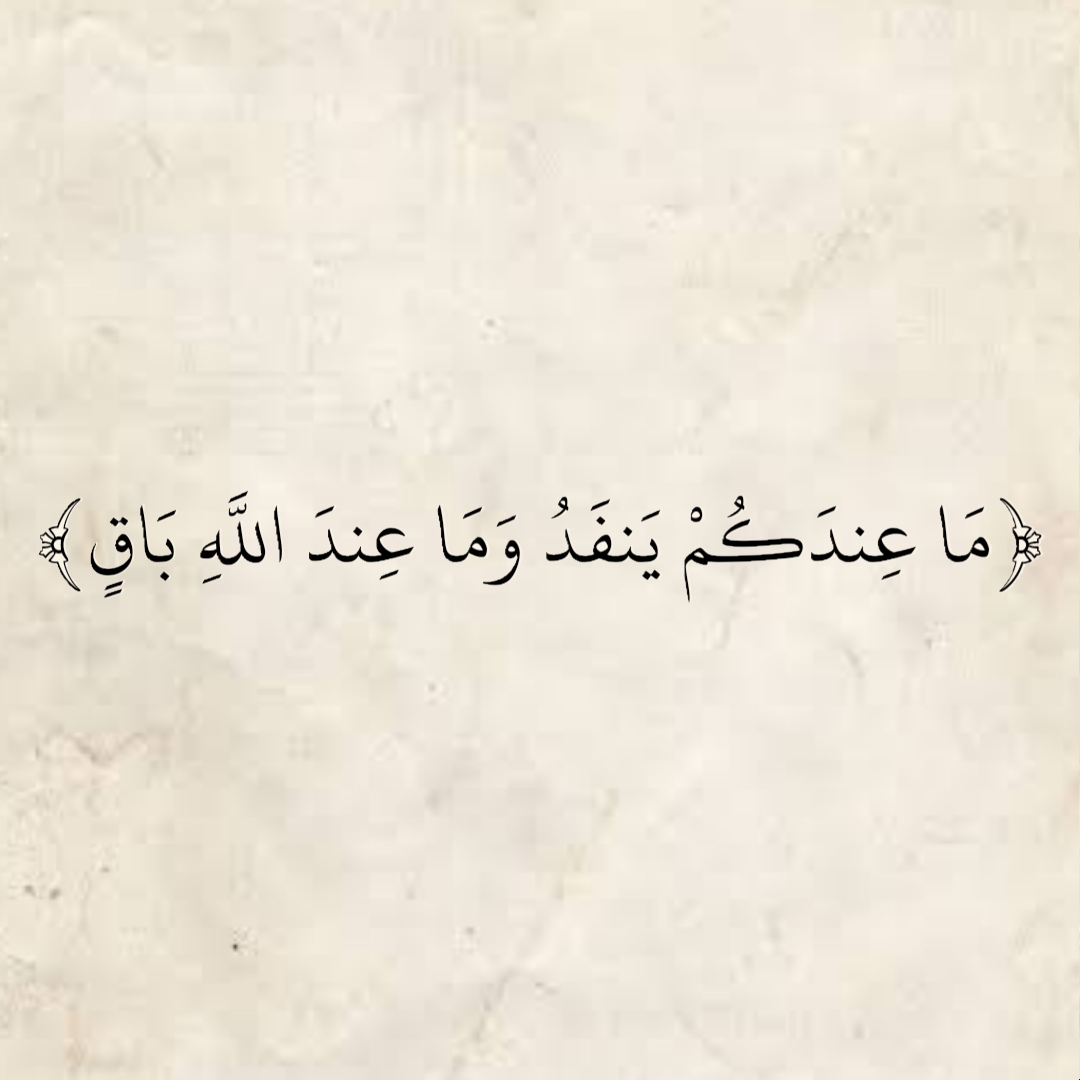 ﴿مَا عِندَكُمْ يَنفَدُ وَمَا عِندَ اللَّهِ بَاقٍ﴾